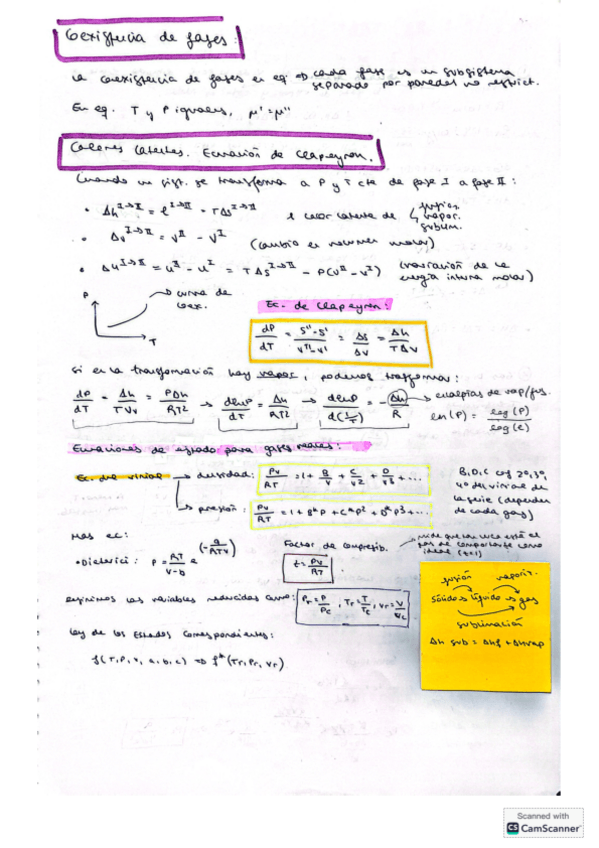 Coexistencia de fases:
la coexistencia de fases en eq ⇒ cada fase es un subsistema
separado por paredes no restrict.
En eq. T y P iguales, μ' = μ''
Calores latentes. Ecuación de Clapeyron.
Cuando un sist. se transforma a P y T cte de fase I a fase II:
• Δh^{I→II} = l^{I→II} = TΔs^{I→II} l calor latente de fusión. vapor. sublim.
• Δv^{I→II} = v^{II} - v^{I} (cambio en volumen molar)
• Δu^{I→II} = u^{II} - u^{I} = TΔs^{I→II} - P(v^{II} - v^{I}) (variación de la
energía interna molar)
P
curva de
coex.
T
Ec. de Clapeyron:
dP/dT = (s'' - s')/(v'' - v') = Δs/Δv = Δh/(TΔv)
Si en la transformación hay vapor, podemos trasformar:
dP/dT = Δh/(T Vv) = PΔh/(RT²) → dlnP/dT = Δh/(RT²) → dlnP/d(1/T) = -Δh/R → entalpías de vap/fus.
ln(P) = log(P)/log(e)
Ecuaciones de estado para gases reales:
Ec. del virial → densidad: Pv/RT = 1 + B/v + C/v² + D/v³ + ...
→ presión: Pv/RT = 1 + B*P + C*P² + D*P³ + ...
B, D, C coef 2º, 3º,
4º del virial de
la serie (dependen
de cada gas)
Más ec:
• Dieterici: P = RT/(v-b) e^(-a/RTv)
Factor de compresib.
z = Pv/RT
mide que tan cerca está el
gas de comportarse como
ideal (z=1)
Definimos las variables reducidas como: Pr = P/Pc, Tr = T/Tc, vr = v/vc
Ley de los Estados Correspondientes:
f(T, P, v, a, b, c) ⇒ f*(Tr, Pr, vr)
fusión vaporiz.
sólido → líquido → gas
sublimación
Δh sub = Δhf + Δhvap
Scanned with
CS CamScanner